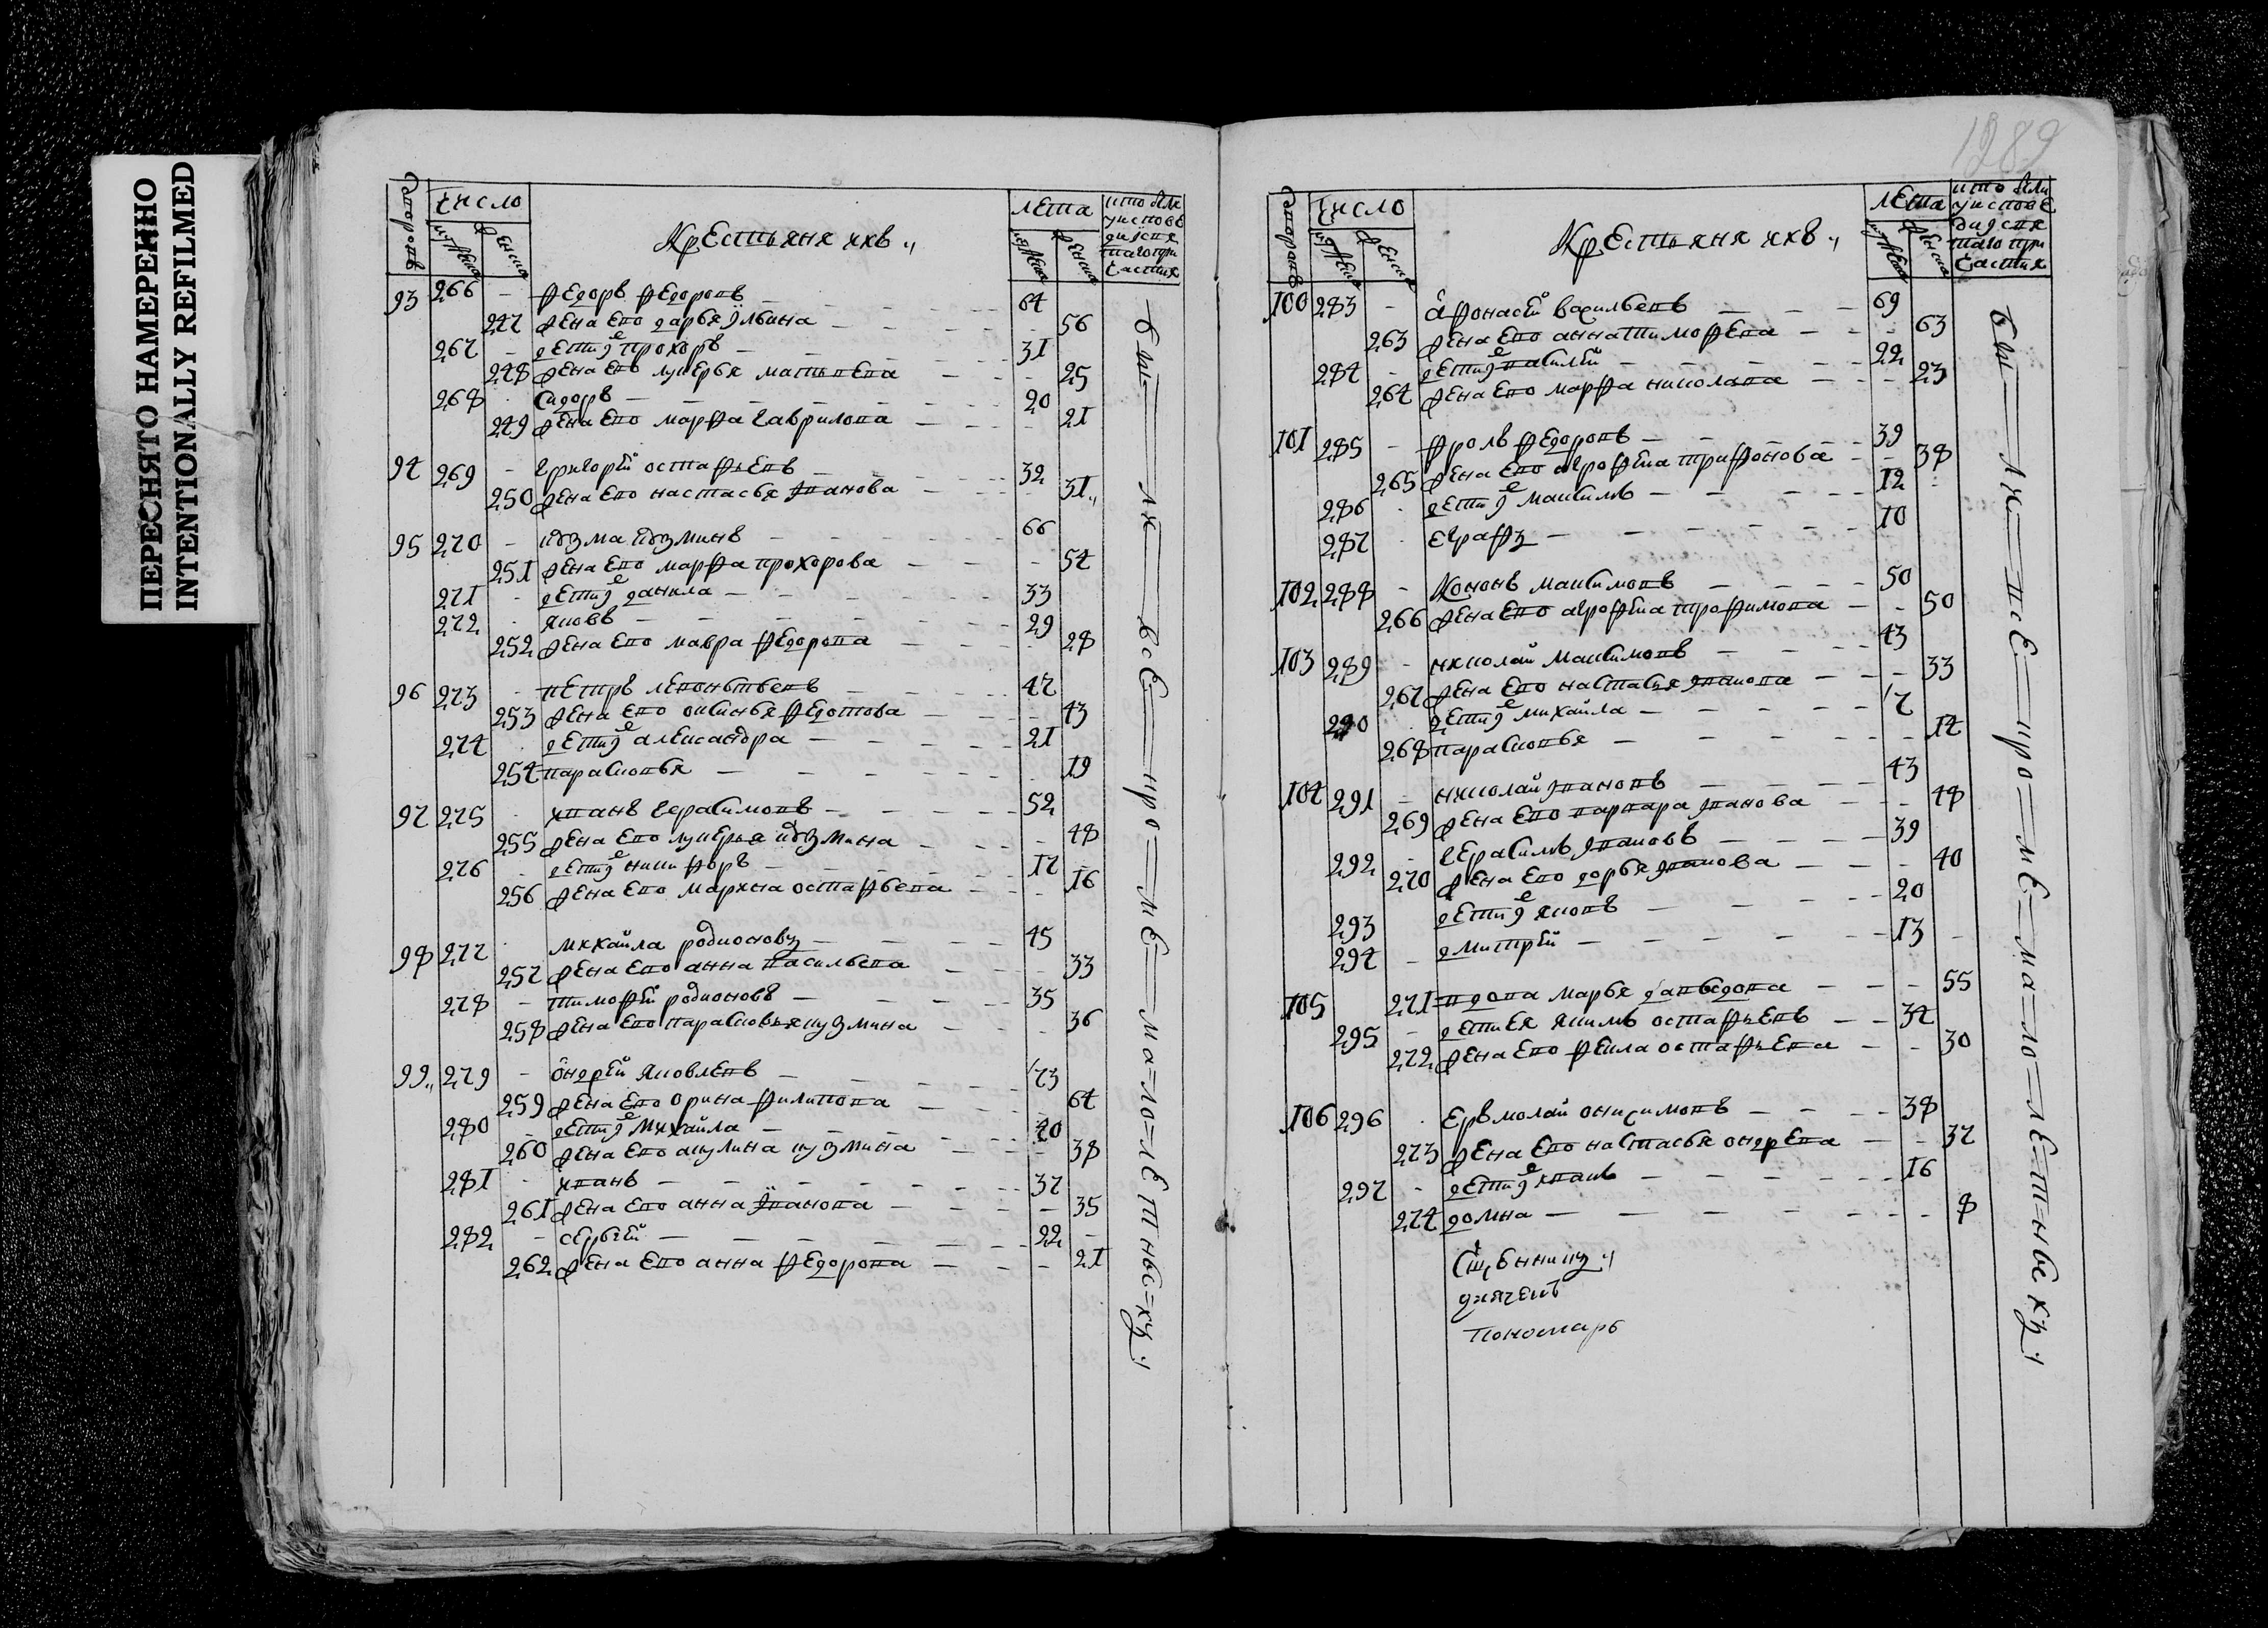 ПЕРЕСНЯТО НАМЕРЕННО
INTENTIONALLY REFILMED
число
Крестьяня ихъ
лета
93 266 - Федоръ Федоровъ 64
247 жена ево дарья ильина 56
267 - дети ?е прохоръ 31
248 жена ево лукерья матвеева 25
268 сидоръ 20
249 жена ево марфа гаврилова 21
94 269 - григорей остафьевъ 32
250 жена ево настасья иванова 31
95 270 - кузма кузминъ 66
251 жена ево марфа прохорова 54
271 - дети данила 33
272 яковъ 29
252 жена ево мавра федорова 28
96 273 - петръ леоньтьевъ 47
253 жена ево оксинья федотова 43
274 дети александра 21
254 парасковья 19
97 275 иванъ герасимовъ 52
255 жена ево лукерья кузмина 48
276 дети никифоръ 17
256 жена ево марина остафьева 16
98 277 михайла родионовъ 45
257 жена ево анна васильева 33
278 - тимофей родионовъ 35
258 жена ево парасковья кузмина 36
99 279 - ондрей яковлевъ 73
259 жена ево орина филипова 64
280 - дети михайла 40
260 жена ево акулина кузмина 38
281 иванъ 37
261 жена ево анна иванова 35
282 - сергей 22
262 жена ево анна федорова 21
бы=ли=все=кро=ме=ма=ло=летныхъ
1289
число
Крестьяня ихъ
лета
100 283 - афонасей васильевъ 69
263 жена ево анна тимофева 63
284 - дети василей 22
264 жена ево марфа николава 23
101 285 - фролъ федоровъ 39
265 жена ево аграфена трифонова 38
286 дети максимъ 12
287 еграфъ 10
102 288 - Кононъ максимовъ 50
266 жена ево аграфена трофимова 50
103 289 - николай максимовъ 43
267 жена ево настасья иванова 33
290 дети михайла 17
268 парасковья 14
104 291 - николай ивановъ 43
269 жена ево варвара иванова 48
292 - герасимъ ивановъ 39
270 жена ево дарья иванова 40
293 дети яковъ 20
294 - дмитрей 13
105 271 вдова марья давыдова 55
295 - дети ея якимъ остафьевъ 34
272 жена ево фекла остафьева 30
106 296 ермолай онисимовъ 38
273 жена ево настасья ондрева 37
297 - дети иванъ 16
274 домна 8
священникъ
дьячекъ
пономарь
бы=ли=все=кро=ме=ма=ло=лет=ныхъ